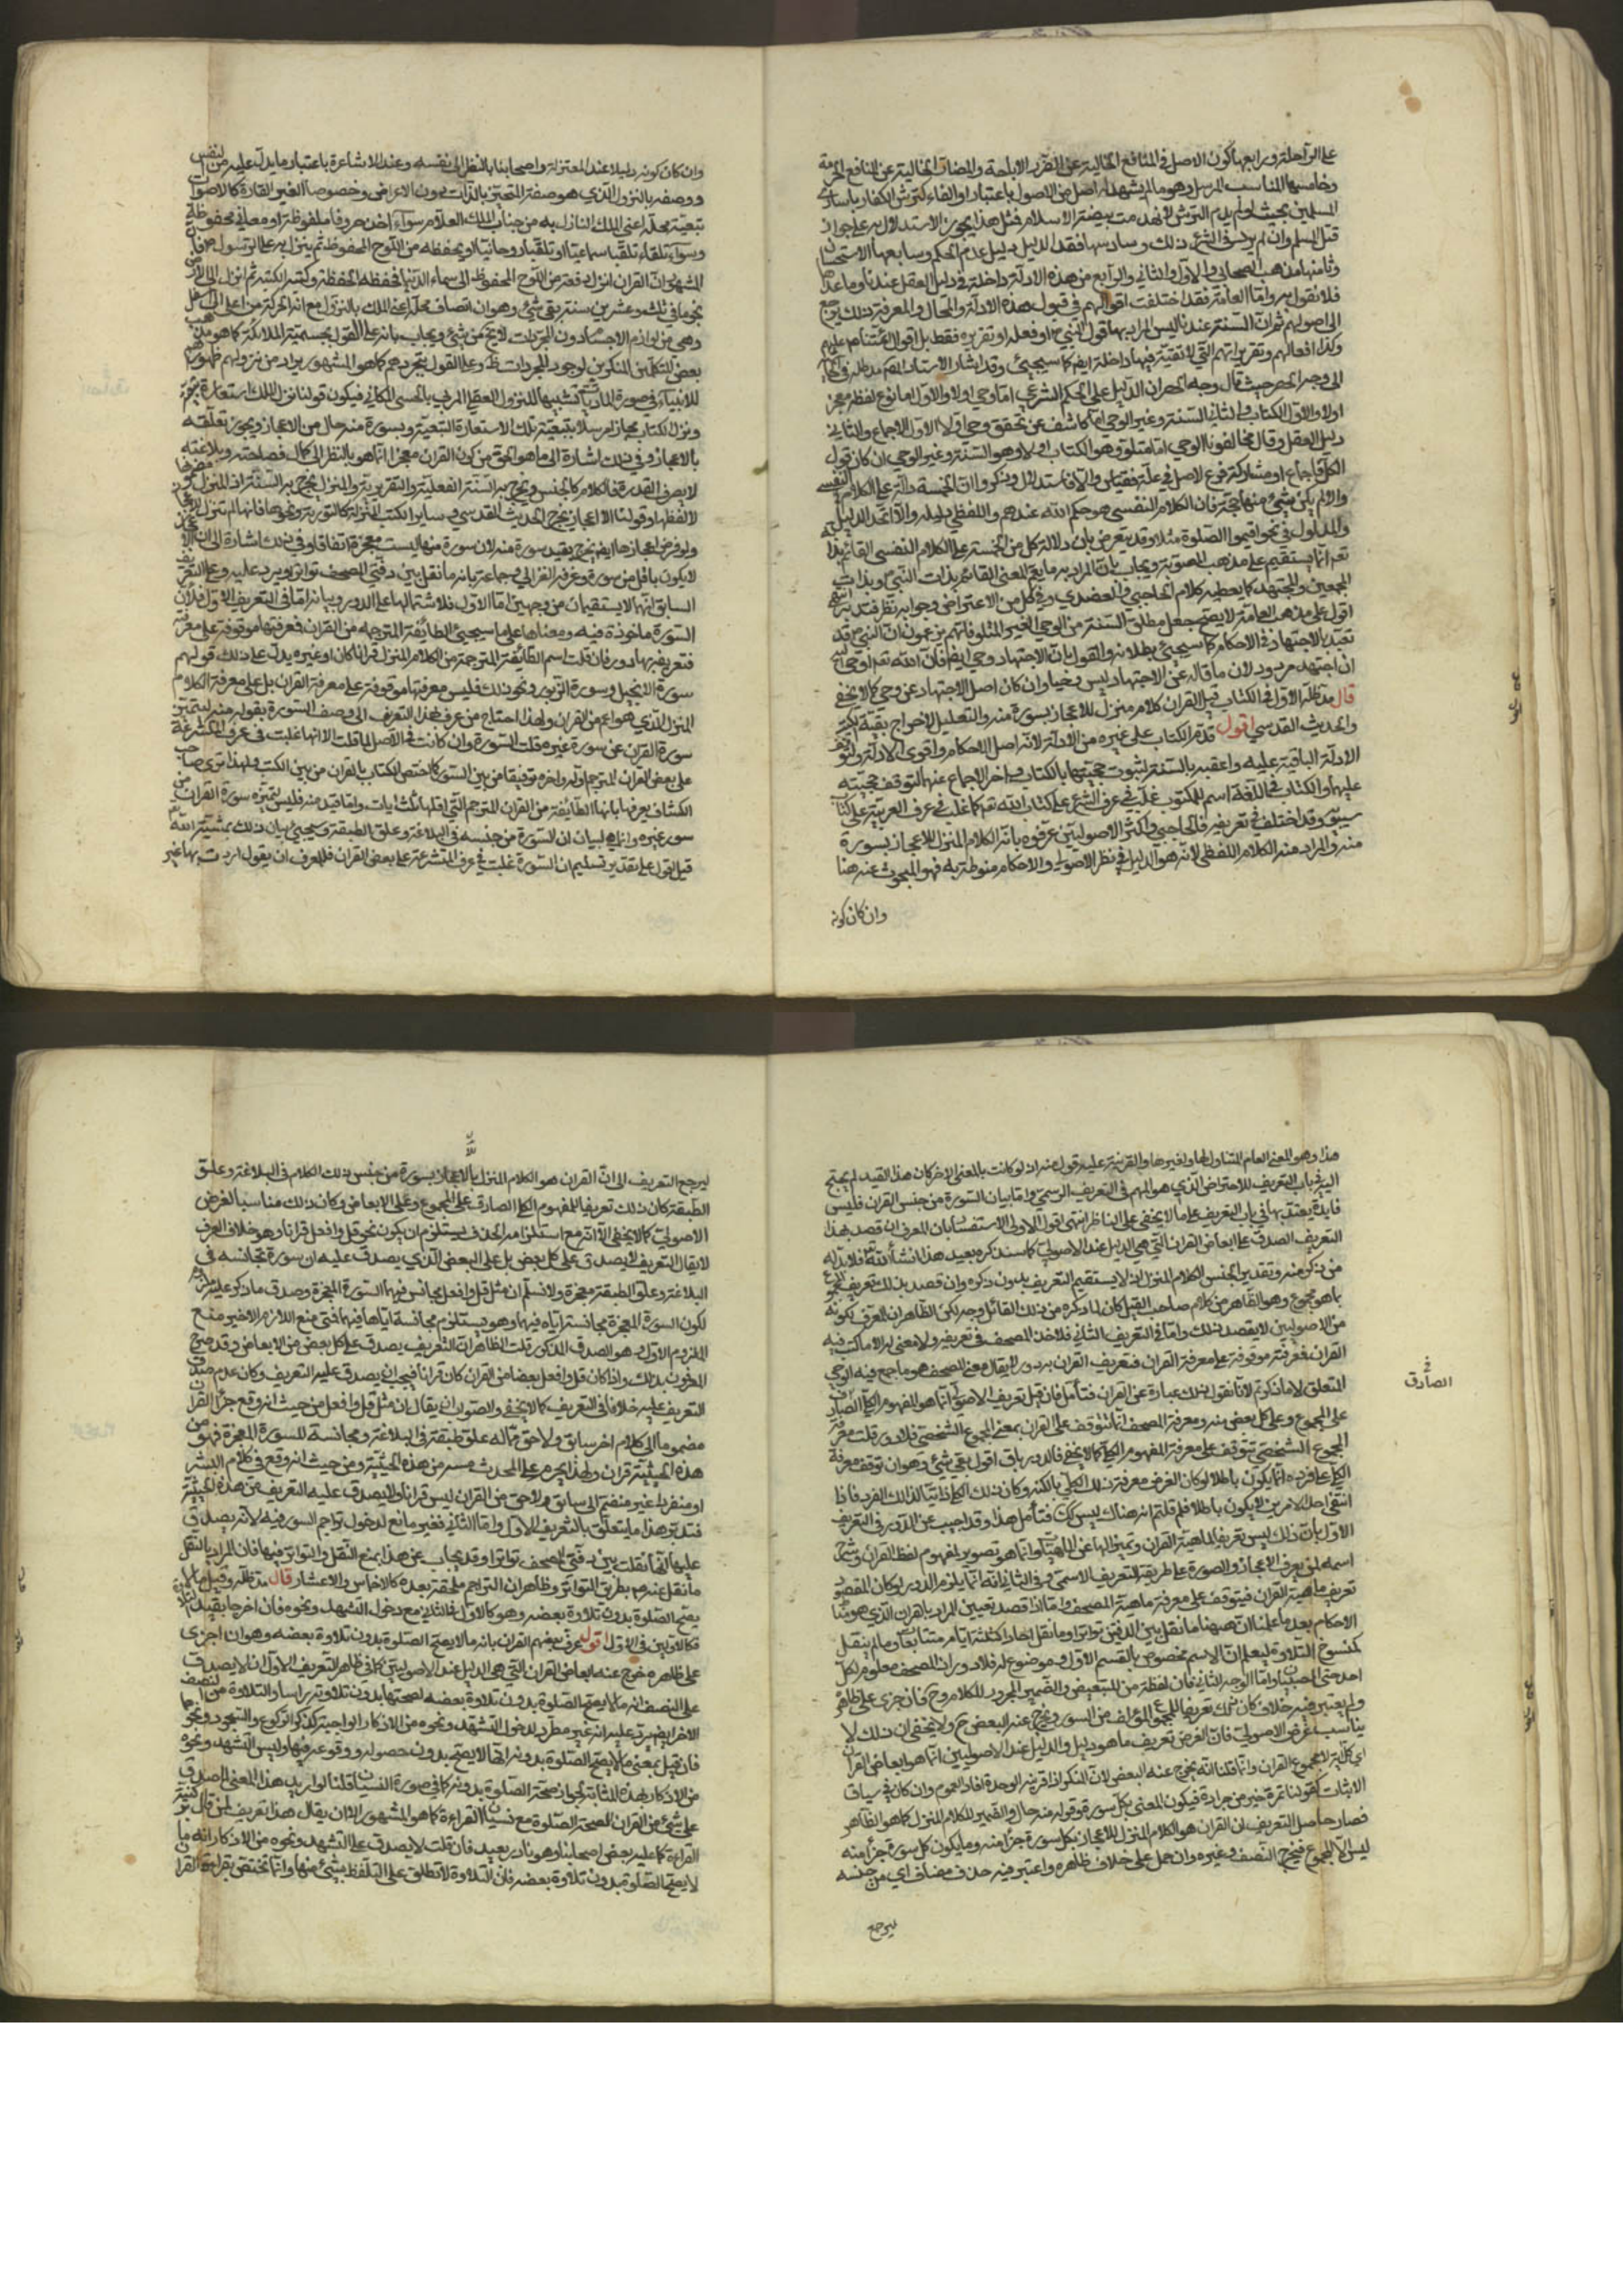 على الراحلة ورابعها كون الاصل في المنافع الخالية عن الضرر الاباحة والمضار الخالية عن المنافع الحرمة
وخامسها المناسب المرسل وهو ما لم يشهد له اصل من الاصول باعتبار او الغاء كتترس الكفار باسارى
المسلمين بحيث لو لم يرم الترس لانهدمت بيضة الاسلام فمثل هذا يجوز الاستدلال به على جواز
قتل المسلم وان لم يرد في الشرع ذلك وسادسها فقد الدليل دليل عدم الحكم وسابعها الاستحسان
وثامنها مذهب الصحابي والاول والثاني والرابع من هذه الادلة داخلة في دليل العقل عندنا وما عداها
فلا نقول به واما العامة فقد اختلفت اقوالهم في قبول هذه الادلة والمحال والمعرفة ذلك يرجع
الى اصولهم ثم ان السنة عندنا ليس المراد بها قول النبي او فعله او تقريره فقط بل اقوال ائمتنا عليهم
وكذا افعالهم وتقريراتهم التي لا تقية فيها داخلة ايضا كما سيجيئ وقد اشار الاستاد
الى وجه الحصر حيث قال وجه الحصر ان الدليل على الحكم الشرعي اما وحي اولا والاول اما نوع لفظه معجز
اولا والاول الكتاب والثاني السنة وغير الوحي اما كاشف عن تحقق وحي اولا الاول الاجماع والثاني
دليل العقل وقال مخالفونا الوحي اما متلو وهو الكتاب اولا وهو السنة وغير الوحي ان كان قول
الكل فاجماع او مشاركة فرع لاصل في علة فقياس والا فاستدلال وذكروا ان الخمسة دالة على الكلام النفسي
والا لم يكن شيئ منها حجة فان الكلام النفسي هو حكم الله عندهم واللفظي دليله والا اتحد الدليل
والمدلول في نحو اقيموا الصلوة مثلا وقد يعترض بان دلالة كل من الخمسة على الكلام النفسي القائم بذاته
تعم انما يستقيم على مذهب المصوبة ويجاب بان المراد به ما يعم المعنى القائم بذات النبي وبذات
المجمعين والمجتهد كما يعطيه كلام الحاجبي والعضدي وفي كل من الاعتراض وجوابه نظر
اقول على مذهب العامة لا يصح جعل مطلق السنة من الوحي الغير المتلو فانهم يزعمون ان النبي قد
تعبد بالاجتهاد في الاحكام كما سيجيئ بطلانه والقول بان الاجتهاد وحي ايضا فان الله تعم اوحى اليه
ان اجتهد مردود لان ما قاله عن الاجتهاد ليس وحيا وان كان اصل الاجتهاد عن وحي كما لا يخفى
قال مد ظله الاول في الكتاب قيل القران كلام منزل للاعجاز بسورة منه والتعليل لاخراج بقية الكتب
والحديث القدسي اقول قدم الكتاب على غيره من الادلة لانه اصل الاحكام واقوى الادلة ولتوقف
الادلة الباقية عليه واعقبه بالسنة لثبوت حجيتها بالكتاب واخر الاجماع عنهما لتوقف حجيته
عليهما والكتاب في اللغة اسم للمكتوب غلب في عرف الشرع على كتاب الله تعم كما غلب في عرف العربية على كتاب
سيبويه وقد اختلف في تعريفه فالحاجبي واكثر الاصوليين عرفوه بانه الكلام المنزل للاعجاز بسورة
منه والمراد منه الكلام اللفظي لانه هو الدليل في نظر الاصولي والاحكام منوطة به فهو المبحوث عنه هنا
وان كان كونه
وان كان كونه دليلا عند المعتزلة واصحابنا بالنظر الى نفسه وعند الاشاعرة باعتبار ما يدل عليه من النفسي
ووصفه بالنزول الذي هو صفة المتحيز بالذات دون الاعراض وخصوصا الغير القارة كالاصوات
تبعية محله اعني الملك النازل به من جناب الملك العلام سواء اخذ حروفا ملفوظة او معاني محفوظة
وسواء تلقاه تلقيا سماعيا او تلقيا روحانيا او بحفظه من اللوح المحفوظ ثم ينزل به على الرسول فان
المشهور ان القران انزل دفعة من اللوح المحفوظ الى سماء الدنيا فحفظه الحفظة وكتبه الكتبة ثم انزل الى الارض
نجوما في ثلث وعشرين سنة بقي شيئ وهو ان اتصاف محله اعني الملك بالنزول مع انه الحركة من اعلى الى اسفل
وهي من لوازم الاجسام دون المجردات لا يخ من شيئ ويجاب بانه على القول بجسمية الملائكة كما هو مذهب
بعض المتكلمين المنكرين لوجود المجردات ظ وعلى القول بتجردهم كما هو المشهور يراد من نزولهم ظهورهم
للانبياء في صورة الماديات تشبيها للنزول العقلي المرتبي بالحسي المكاني فيكون قولنا نزل الملك استعارة تبعية
ونزل الكتاب مجاز مرسلا بتبعية تلك الاستعارة التبعية وبسورة منه حال من الاعجاز ويجوز تعلقه
بالاعجاز وفي ذلك اشارة الى ما هو الحق من كون القران معجزا انما هو بالنظر الى كمال فصاحته وبلاغته
لا بصرف القدرة فالكلام كالجنس ويخرج به السنة الفعلية والتقريرية والمنزل يخرج به السنة
لا لفظها وقولنا للاعجاز يخرج الحديث القدسي وساير الكتب المنزلة كالتورية ونحوها فانها لم تنزل للاعجاز
ولو فرض اعجازها ايضا يخرج بقيد سورة منه لان سورة منها ليست معجزة اتفاقا وفي ذلك اشارة الى ان الاعجاز
لا يكون باقل من سورة وعرفه الغزالي وجماعة بانه ما نقل بين دفتي المصحف تواترا ويرد عليه وعلى التعريف
السابق انهما لا يستقيمان من وجهين اما الاول فلاشتمالهما على الدور وبيانه اما في التعريف الاول فلان
السورة ماخوذة فيه ومعناها على ما سيجيئ الطائفة المترجمة من القران فمعرفتها موقوفة على معرفته
فتعريفه بها دور فان قلت اسم الطائفة المترجمة من الكلام المنزل قرانا كان او غيره يدل على ذلك قولهم
سورة الانجيل وسورة الزبور ونحو ذلك فليس معرفتها موقوفة على معرفة القران بل على معرفة الكلام
المنزل الذي هو اعم من القران ولهذا احتاج من عرف بهذا التعريف الى وصف السورة بقوله منه ليتميز
سورة القران عن سورة غيره قلت السورة وان كانت في الاصل لما قلت الا انها غلبت في عرف المتشرعة
على بعض القران المترجم اوله واخره توقيفا من بين السور كما اختص الكتاب بالقران من بين الكتب ولهذا ترى صاحب
الكشاف يعرفها بانها الطائفة من القران المترجم التي اقلها ثلث ايات وانما قيد منه فليس لتميزه سورة القران من
سور غيره وانما هو لبيان ان السورة من جنسه في البلاغة وعلو الطبقة وسيجيئ بيان ذلك بمشية الله
قيل اقول على تقدير تسليم ان السورة غلبت في عرف المتشرعة على بعض القران فللمعرف ان يقول اردت بها غير
هذا وهو المعنى العام المتناول لها ولغيرها والقرينة عليه قول منه اذ لو كانت بالمعنى الاخر كان هذا القيد لم يحتج
اليه في باب التعريف للاحتراض الذي هو المهم في التعريف الرسمي واما بيان السورة من جنس القران فليس
فايدة يعتد بها في باب التعريف على ما لا يخفى على الناظر انتهى اقول الاولى الاستفسار بان المعرف ان قصد بهذا
التعريف الصدق على ابعاض القران التي هي الدليل عند الاصولي كما سنذكره بعيد هذا انشاء الله فلا بد له
من ذكر منه وتقدير الجنس الكلام المنزل اذ لا يستقيم التعريف بدون ذكره وان قصد بذلك تعريف المجموع
بما هو مجموع وهو الظاهر من كلام صاحب القيل كان لما ذكره من ذلك القائل وجه لكن الظاهر ان المعرف لكونه
من الاصوليين لا يقصد ذلك واما في التعريف الثاني فلاخذ المصحف في تعريفه ولا معنى له الا ما كتب فيه
القران فمعرفته موقوفة على معرفة القران فتعريف القران به دور لا يقال معنى المصحف هو ما جمع فيه الوحي
المتعلق لا ما ذكرتم لانا نقول ذلك عبارة عن القران فتأمل فان قيل تعريف الاصولي انما هو للمفهوم الكلي الصادق
على المجموع وعلى كل بعض منه ومعرفة المصحف انما تتوقف على القران بمعنى المجموع الشخصي فلا دور قلت معرفة
المجموع الشخصي تتوقف على معرفة المفهوم الكلي كما لا يخفى فالدور باق اقول بقي شيئ وهو ان توقف معرفة
الكلي على فرده انما يكون باطلا لو كان الغرض معرفة ذلك الكلي بالكنه وكان ذلك الكلي ذاتيا لذلك الفرد فاذا
انتفى احد الامرين لا يكون باطلا فلم قلتم انه هناك ليس كك فتأمل هذا وقد اجيب عن الدور في التعريف
الاول بان ذلك ليس تعريفا لماهية القران وتميزا لها عن الماهيات وانما هو تصوير لمفهوم لفظ القران وشرح
اسمه لمن يعرف الاعجاز والسورة على طريقة التعريف الاسمي وفي الثاني انه انما يلزم الدور لو كان المقصود
تعريف ماهية القران فيتوقف على معرفة ماهية المصحف واما اذا قصد تعيين المراد بالقران الذي هو مناط
الاحكام بعد ما علمنا ان ههنا ما نقل بين الدفتين تواترا وما نقل احادا كثلثة ايام متتابعات وما لم ينقل
كمنسوخ التلاوة ليعلم ان الاسم مخصوص بالقسم الاول وموضوع له فلا دور ان المصحف معلوم لكل
احد حتى الصبيان واما الوجه الثاني فان لفظة من للتبعيض والضمير المجرور للكلام وح فان جرى على ظاهره
ولم يعتبر فيه خلاف كان ذلك تعريفا للمجموع المؤلف من السور ويخرج عنه البعض ح ولا يخفى ان ذلك لا
يناسب غرض الاصولي فان الغرض تعريف ما هو دليل والدليل عند الاصوليين انما هو ابعاض القران
اي كل اية لا مجموع القران وانما قلنا انه يخرج عنه البعض لان النكرة اذا قرنت الوحدة افاد العموم وان كان في سياق
الاثبات كقولنا تمرة خير من جرادة فيكون المعنى بكل سورة وقوله منه حال والضمير للكلام المنزل كما هو الظاهر
فصار حاصل التعريف ان القران هو الكلام المنزل للاعجاز بكل سورة جزأ منه وما يكون كل سورة جزأ منه
ليس الا المجموع فيخرج النصف وغيره وان حمل على خلاف ظاهره واعتبر فيه حذف مضاف اي من جنسه
ليرجع
الصادق
ليرجع التعريف الى ان القران هو الكلام المنزل للاعجاز بسورة من جنس ذلك الكلام في البلاغة وعلو
الطبقة كان ذلك تعريفا للمفهوم الكلي الصادق على المجموع وعلى الابعاض وكان ذلك مناسبا لغرض
الاصولي كما لا يخفى الا انه مع استلزامه الحذف يستلزم ان يكون نحو قل وافعل قرانا وهو خلاف العرف
لا يقال التعريف لا يصدق على كل بعض بل على البعض الذي يصدق عليه ان سورة تجانسه في
البلاغة وعلو الطبقة معجزة ولا نسلم ان مثل قل وافعل مجانس فيها السورة المعجزة وصدق ما ذكر عليه
لكون السورة المعجزة مجانسة اياه فيها وهو يستلزم مجانسة اياها فيها فمتى منع اللازم الاخير منع
الملزوم الاول وهو الصدق المذكور قلت الظاهر ان التعريف يصدق على كل بعض من الابعاض وقد صرح
المعرفون بذلك واذا كان قل وافعل بعضا من القران كان قرانا فيجب ان يصدق عليه التعريف وكان عدم صدق
التعريف عليه خلافا في التعريف كما لا يخفى والصواب ان يقال ان مثل قل وافعل من حيث انه وقع جزأ القران
مضموما الى كلام اخر سابق ولاحق مما له علو طبقة في البلاغة ومجانسة للسورة المعجزة فهو من
هذه الحيثية قران ولهذا يحرم على المحدث مسه من هذه الحيثية ومن حيث انه وقع في كلام البشر
او منفردا غير منضم الى سابق ولاحق من القران ليس قرانا ولا يصدق عليه التعريف من هذه الحيثية
فتدبر هذا ما يتعلق بالتعريف الاول واما الثاني فغير مانع لدخول تراجم السور فيه لانه يصدق
عليها انها نقلت بين دفتي المصحف تواترا وقد يجاب عن هذا بمنع النقل والتواتر فيها فان المراد بالنقل
ما نقل عنه بطريق التواتر وظاهر ان التراجم ملحقة بعده كالاخماس والاعشار قال مد ظله وقيل ما لا
يصح الصلوة بدون تلاوة بعضه وهو كالاول فالثاني مع دخول التشهد ونحوه فان اخرجا بقيد
فكالاولين في الاول اقول عرف بعضهم القران بانه ما لا يصح الصلوة بدون تلاوة بعضه وهو ان اجرى
على ظاهره خرج عنه ابعاض القران التي هي الدليل عند الاصوليين كما في ظاهر التعريف الاول اذ لا يصدق
على النصف انه ما لا يصح الصلوة بدون تلاوة بعضه لصحتها بدون تلاوته راسا والتلاوة من النصف
الاخر ايضا يرد عليه انه غير مطرد لدخول التشهد ونحوه من الاذكار الواجبة كذكر الركوع والسجود ونحوها
فان قيل بمعنى ما لا يصح الصلوة بدونه انها لا يصح بدون حصوله ووقوعه فيها وليس التشهد ونحوه
من الاذكار بهذه المثابة لجواز صحة الصلوة بدونه كما في صورة النسيان قلنا لو اريد هذا المعنى لا يصدق
على شيئ من القران لصحة الصلوة مع نسيان القراءة كما هو المشهور الا ان يقال هذا تعريف لمن قال بركنية
القراءة كما عليه بعض اصحابنا وهو نادر بعيد فان قلت لا يصدق على التشهد ونحوه من الاذكار انه ما
لا يصح الصلوة بدون تلاوة بعضه فان التلاوة لا تطلق على التلفظ بشيئ منها وانما تختص بقراءة القران